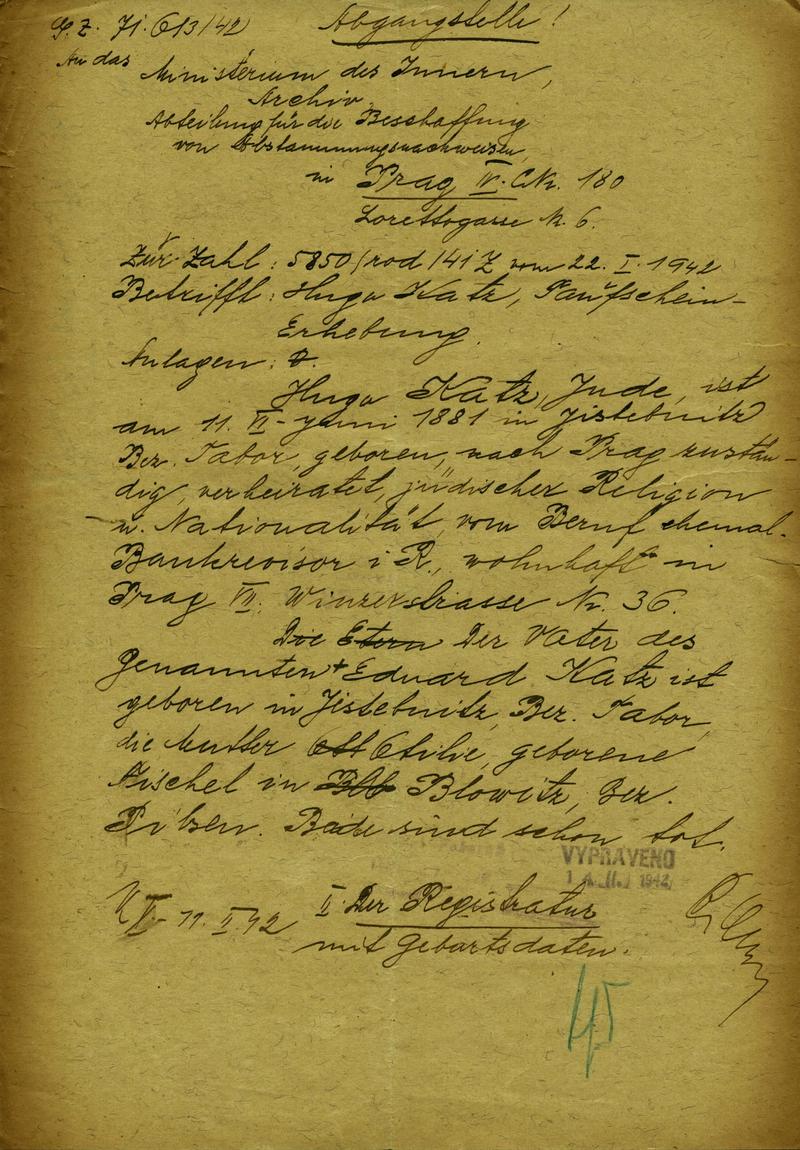 G. Z. 71.613/42 Abgangstelle!
An das
Ministerium des Innern,
Archiv
Abteilung für die Beschaffung
von Abstammungsnachweisen,
in Prag IV. CNr. 180
Lorettogasse N. 6.
Zur Zahl: 5850/rod/41 Z vom 22. I. 1942
Betrifft: Hugo Katz, Taufschein-
Erhebung.
Anlagen: 0.
Hugo Katz, Jude, ist
am 11. VI - Juni 1881 in Jistebnitz
Bez. Tabor, geboren, nach Prag zustän-
dig, verheiratet, jüdischer Religion
u. Nationalität, vom Beruf ehemal.
Bankrevisor i R., wohnhaft in
Prag VII. Winzerstrasse Nr. 36.
Die Etern Der Vater des
Genannten + Eduard Katz ist
geboren in Jistebnitz, Bez. Tabor,
die Mutter Otilie, geborene
Fischel in Blo Blowitz, Bez.
Pilsen. Beide sind schon tot.
VYPRAVENO
1942
11. II. 42 II. Der Registratur
mit Geburtsdaten.
45